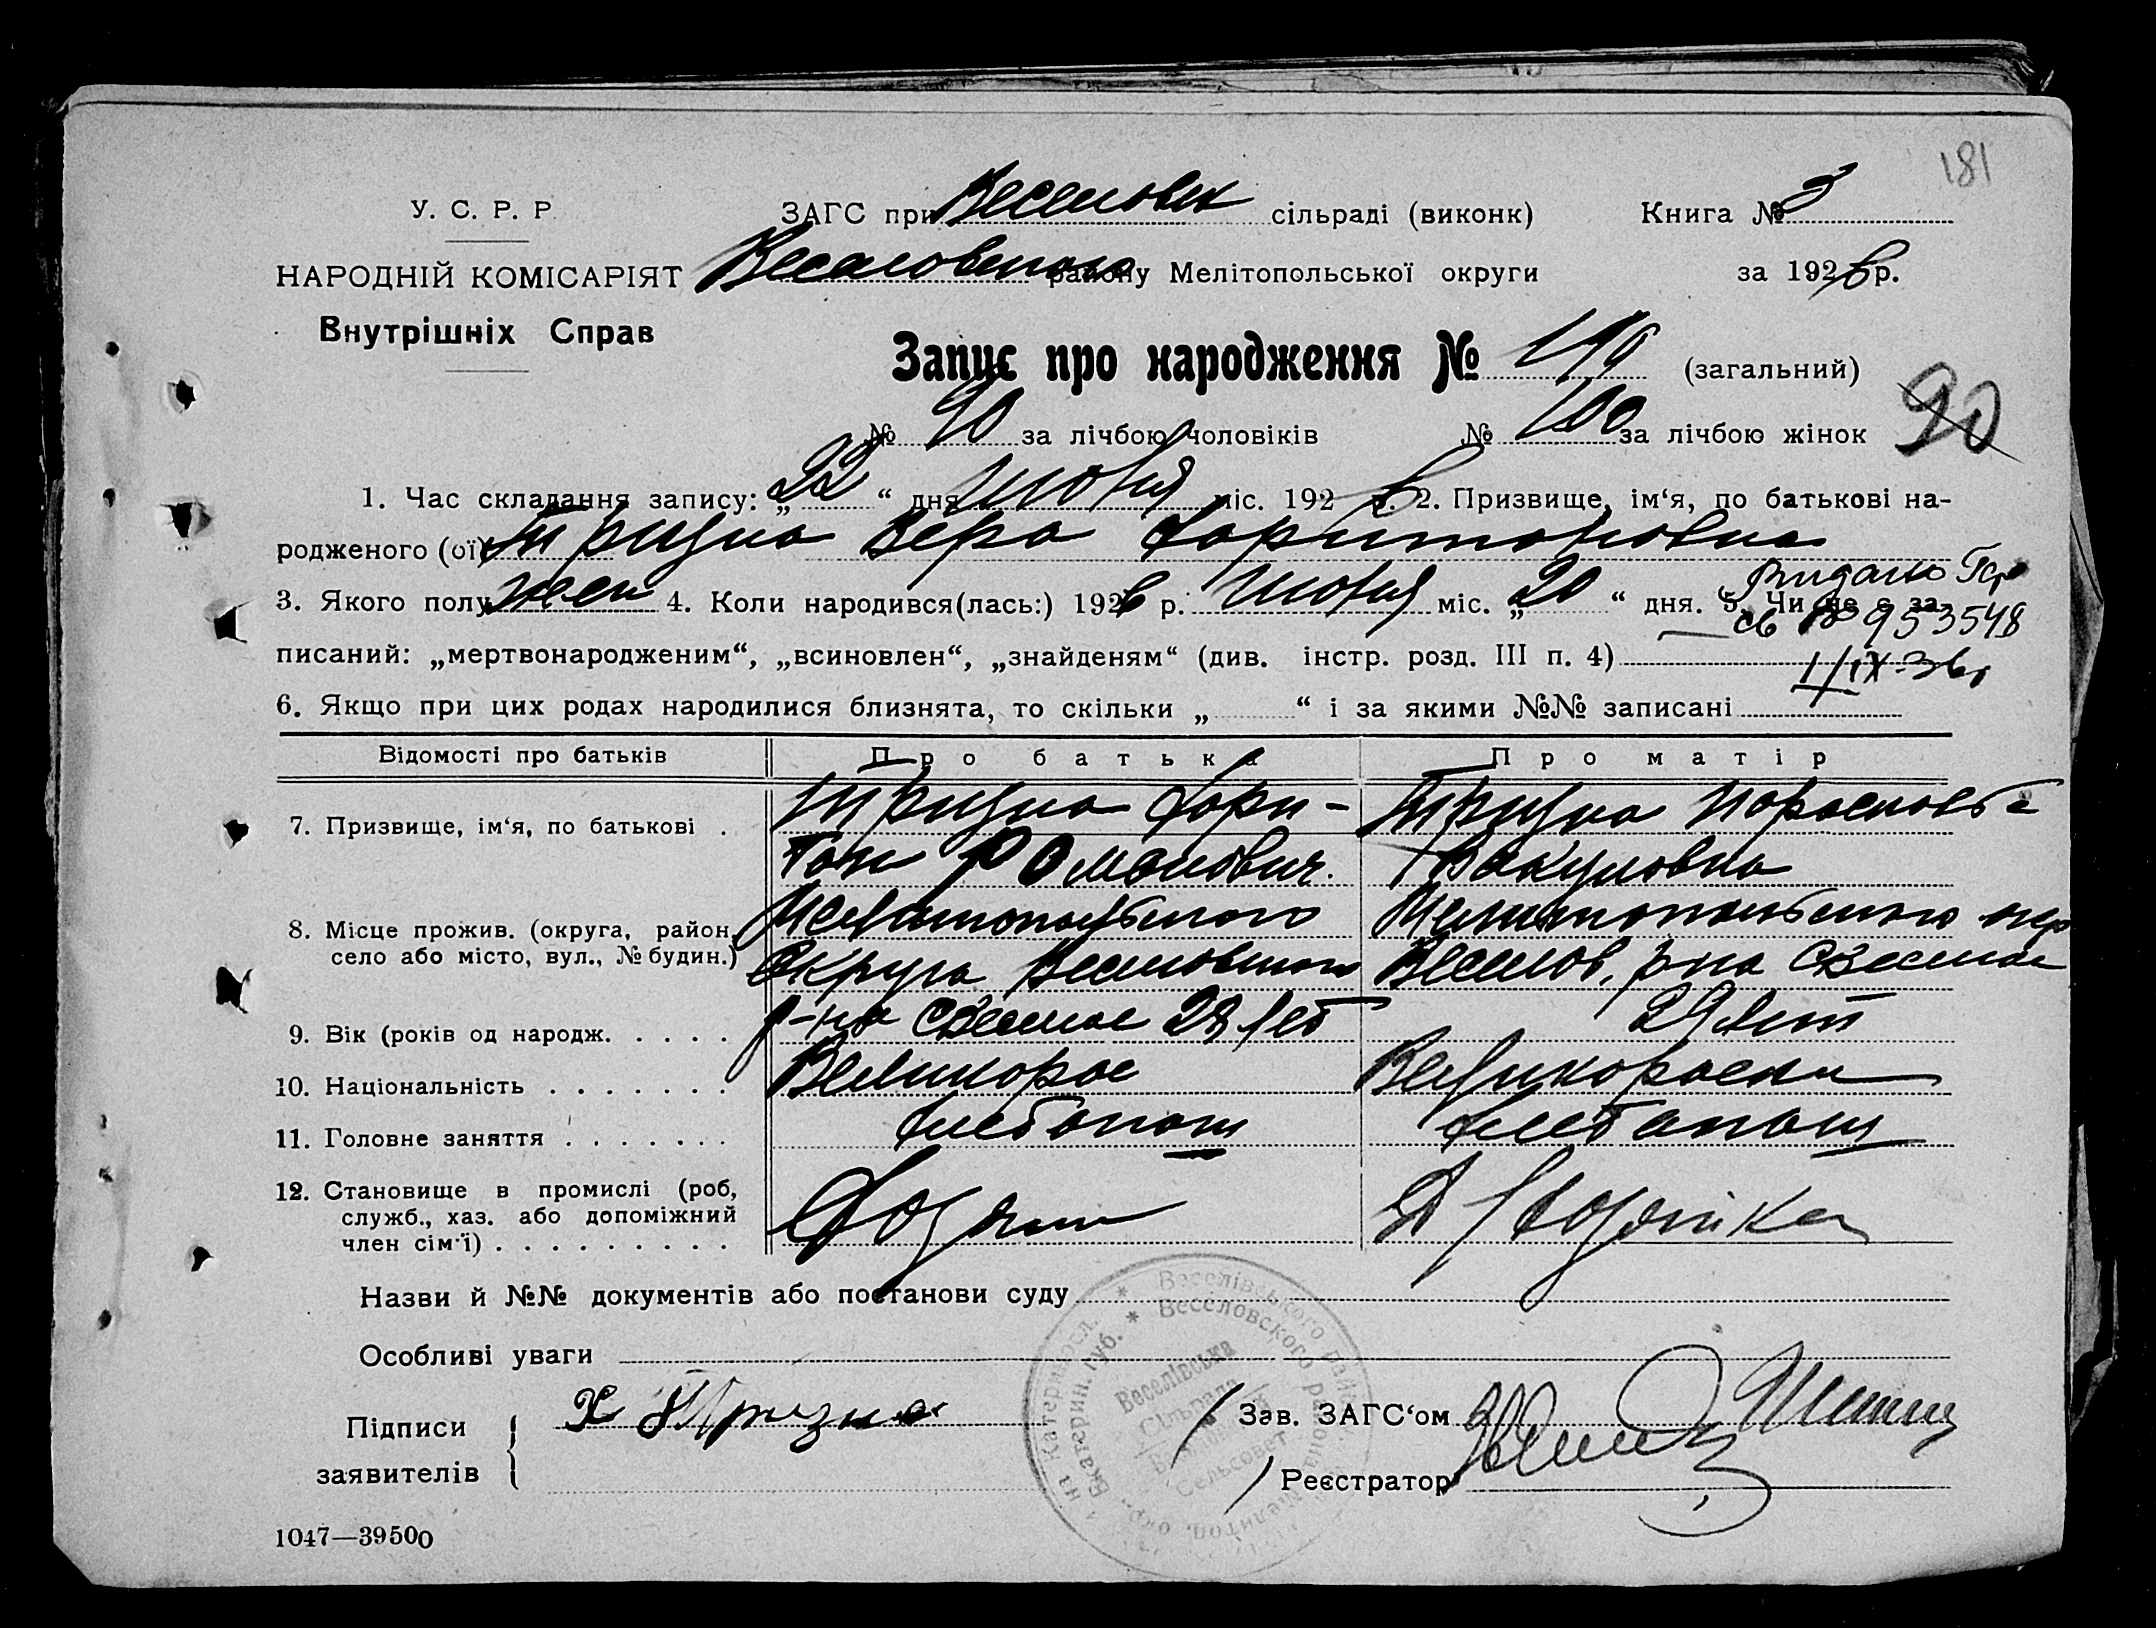 181
У. С. Р. Р.
ЗАГС при Веселовск сільраді (виконк) Книга № 3
НАРОДНІЙ КОМІСАРІЯТ Веселовского району Мелітопольської округи за 1926 р.
Внутрішніх Справ
Запис про народження № 190 (загальний)
№ 90 за лічбою чоловіків № 100 за лічбою жінок 90
1. Час складання запису: „22“ дня Июня міс. 1926 р. 2. Призвище, ім‘я, по батькові на-
родженого (ої) Тризна Вера Харитоновна
3. Якого полу жен 4. Коли народився(лась:) 1926 р. Июня міс. „20“ дня. 5. Чи не є за-
Видано
св № 953548
писаний: „мертвонародженим“, „всиновлен“, „знайденям“ (див. інстр. розд. III п. 4)
1/IX-36г
6. Якщо при цих родах народилися близнята, то скільки „ “ і за якими №№ записані
Відомості про батьків Про батька Про матір
7. Призвище, ім‘я, по батькові . Тризна Хари- Тризна Парасковья
тон Романович. Вакуловна
8. Місце прожив. (округа, район, Мелитопольского Мелитопольского окр
село або місто, вул., № будин.) Округа Веселовского Веселов. р-на с Веселое
9. Вік (років од народж. . . . . р-на с Веселое 28 лет 29 лет
10. Національність . . . . . . . Великорос Великороска
11. Головне заняття . . . . . . . Хлебопаш Хлебопаш
12. Становище в промислі (роб, Хозяин Д/хозяйка
служб., хаз. або допоміжний
член сім‘ї) . . . . . . . . .
Назви й №№ документів або постанови суду
Особливі уваги
Веселівського
Веселовского района
Екатерин. губ.
Веселівська
Сільрада
Сельсовет
Підписи Х Тризна Зав. ЗАГС‘ом
заявителів Реєстратор
1047—39500